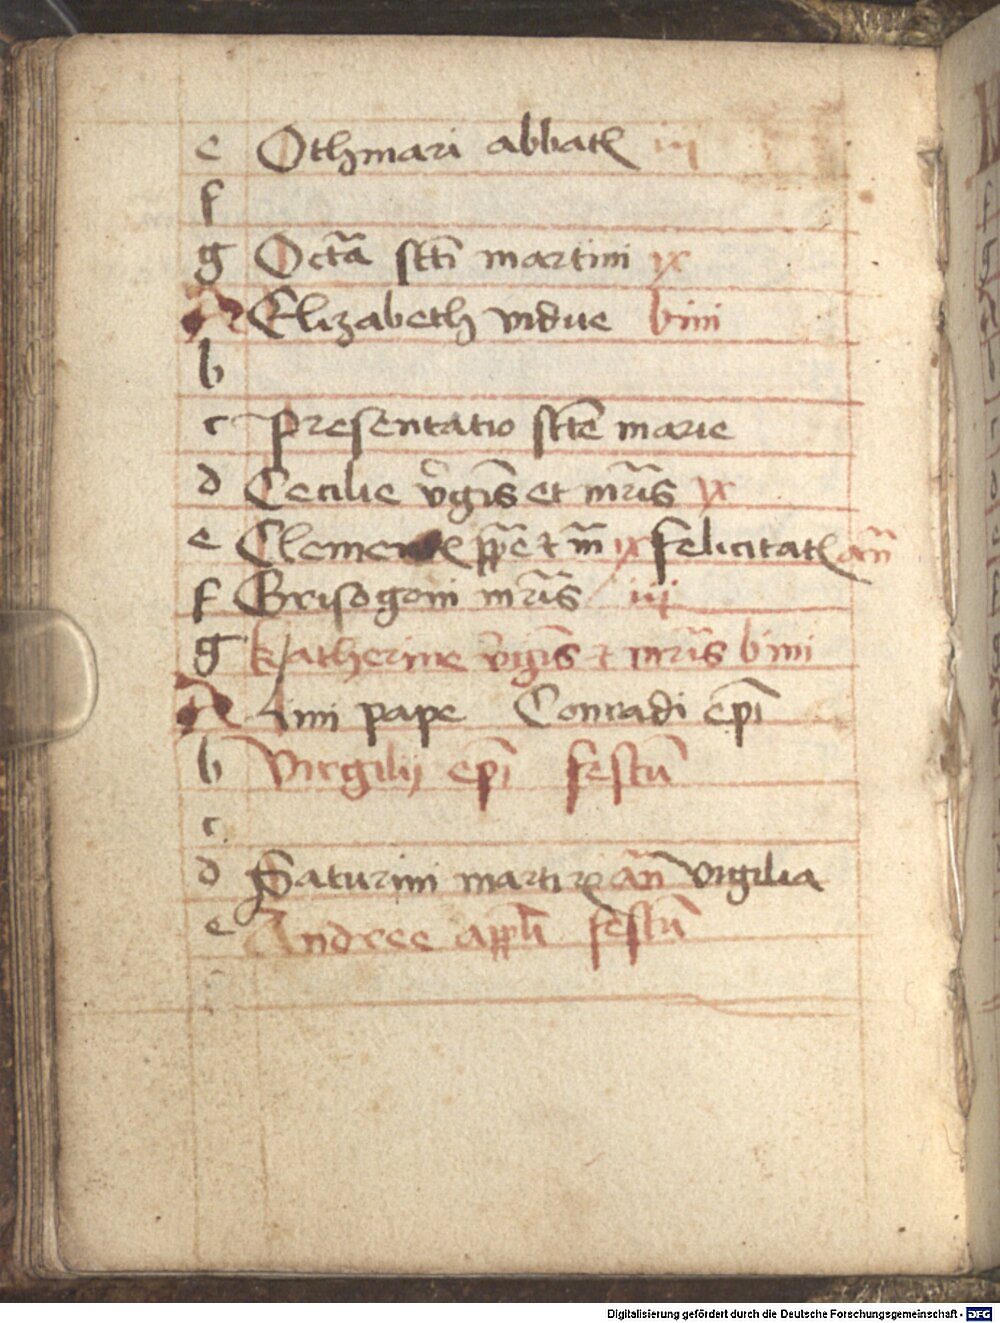 e Othmari abbatꝭ iii
f
g Octā sctī martini ix
A Elizabeth vidue bini
b
c Presentatio sctē marie
d Cecilie v̊gīs et mr̄is ix
e Clementꝭ pp̄e et m̄ ix felicitatꝭ an̄
f Grisogoni mr̄is iij
g katherine v̊gīs et mr̄is bini
A Lini pape Conradi ep̄i
b Virgilij ep̄i festū
c
d Saturini martirꝭ an̄ vigilia
e Andree appl̄i festū
Digitalisierung gefördert durch die Deutsche Forschungsgemeinschaft - DFG